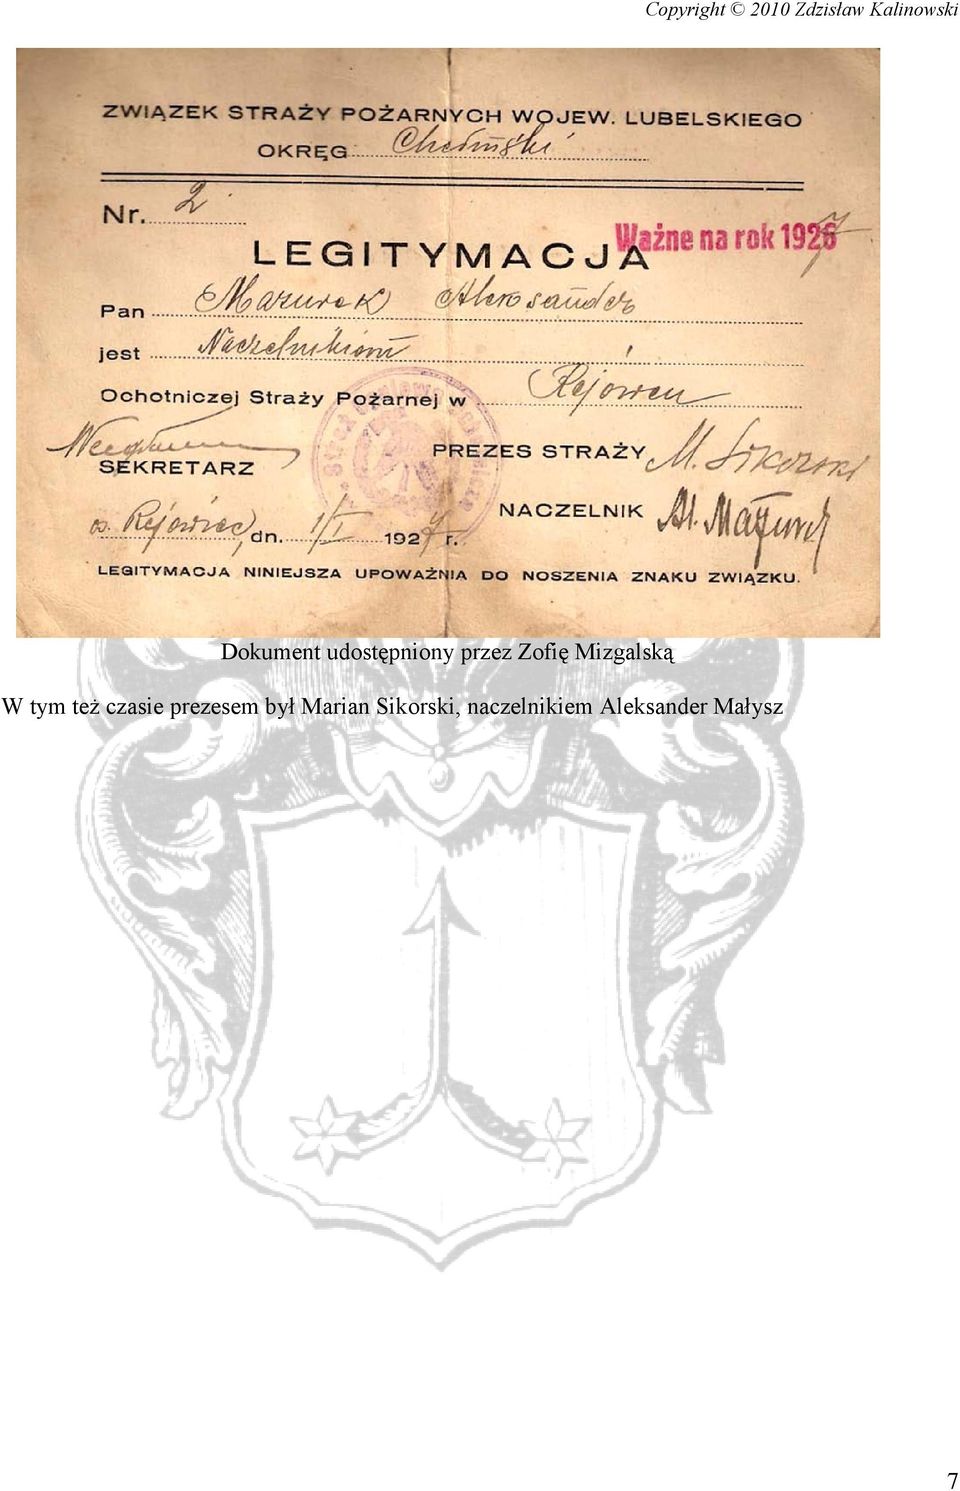 Copyright © 2010 Zdzisław Kalinowski
ZWIĄZEK STRAŻY POŻARNYCH WOJEW. LUBELSKIEGO
OKRĘG Chełmński
Nr. 2
Ważne na rok 1926 7
LEGITYMACJA
Pan Mazurek Aleksander
jest Naczelnikiem
Ochotniczej Straży Pożarnej w Rejowcu
SEKRETARZ
PREZES STRAŻY M. Sikorski
os. Rejowiec, dn. 1/I 1927 r.
NACZELNIK Al. Mazurek
LEGITYMACJA NINIEJSZA UPOWAŻNIA DO NOSZENIA ZNAKU ZWIĄZKU.
Dokument udostępniony przez Zofię Mizgalską
W tym też czasie prezesem był Marian Sikorski, naczelnikiem Aleksander Małysz
7